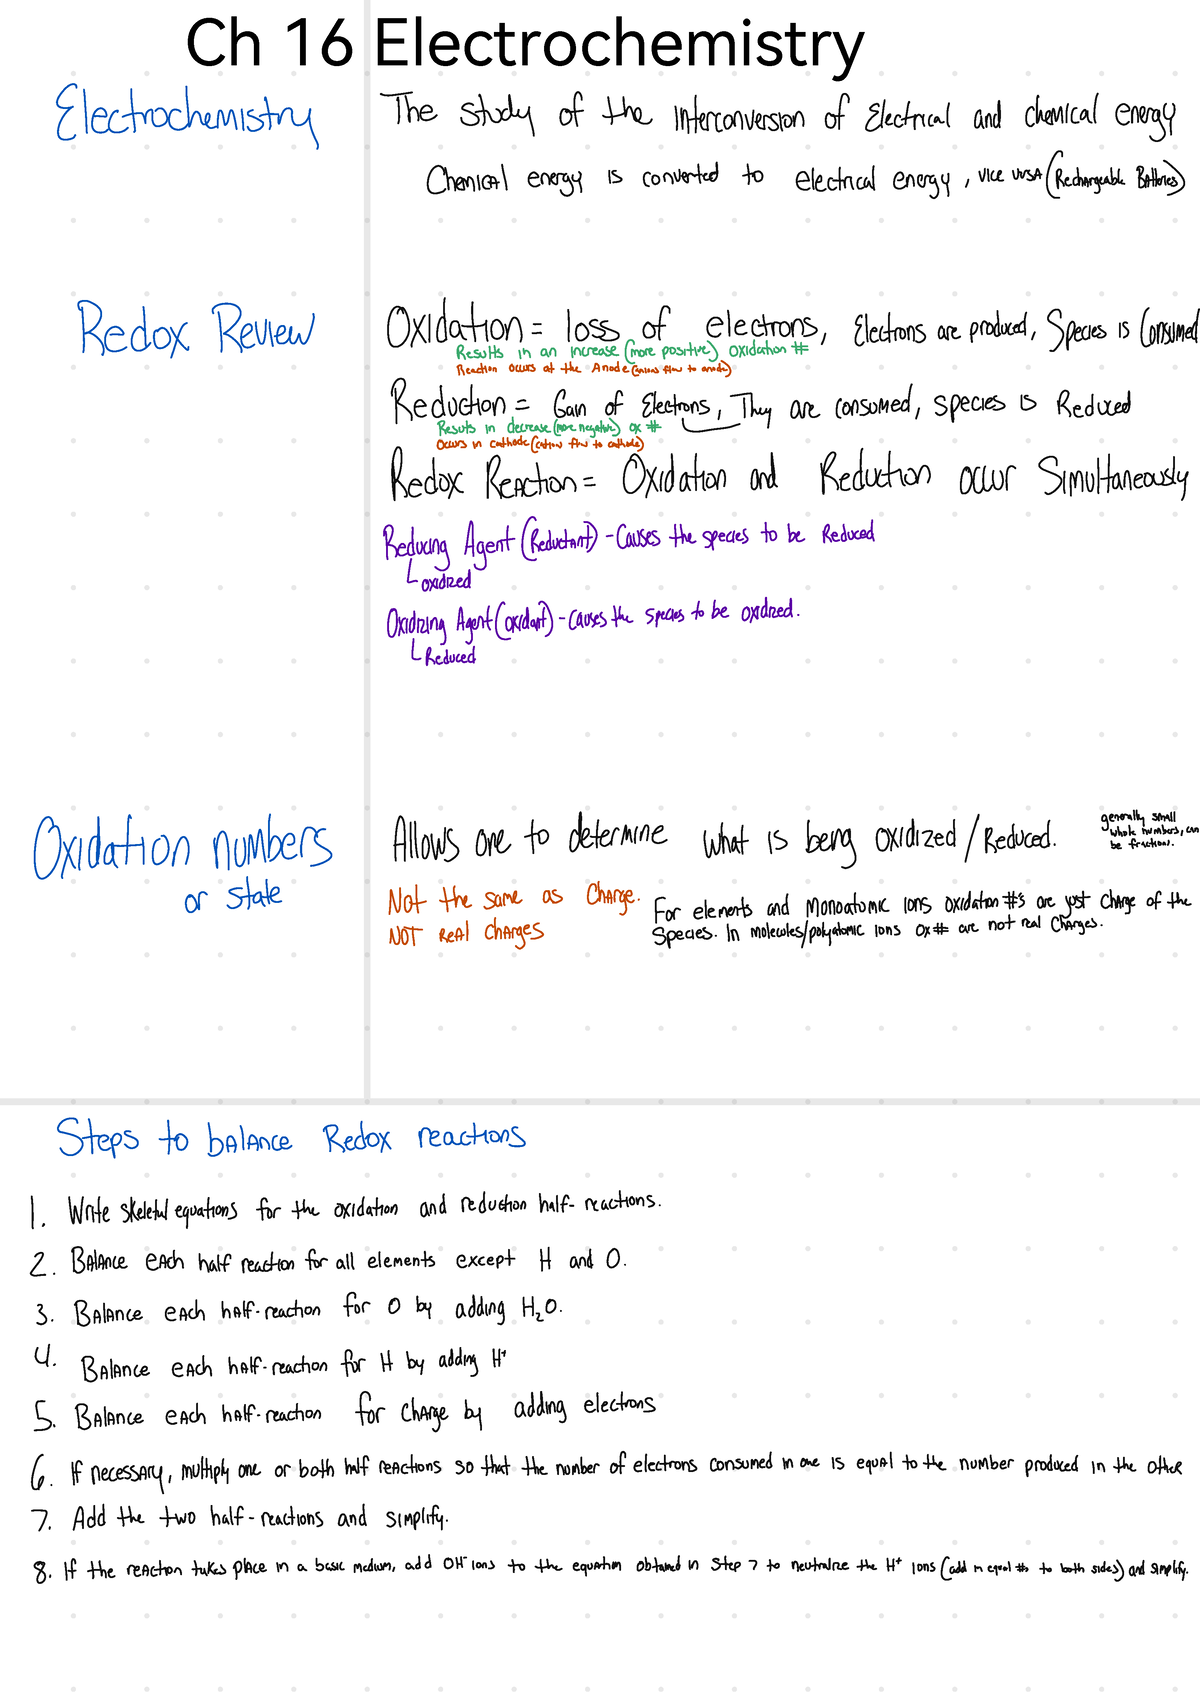 Ch 16 Electrochemistry
Electrochemistry
The study of the interconversion of Electrical and chemical energy
Chemical energy is converted to electrical energy, vice vrsa (Rechargeable Batteries)
Redox Review
Oxidation = loss of electrons, Electrons are produced, Species is Consumed
Results in an increase (more positive) oxidation #
Reaction occurs at the Anode (anions flow to anode)
Reduction = Gain of Electrons, They are consumed, species is Reduced
Results in decrease (more negative) ox #
Occurs in cathode (cation flow to cathode)
Redox Reaction = Oxidation and Reduction occur Simultaneously
Reducing Agent (Reductant) - Causes the species to be Reduced
oxidized
Oxidizing Agent (oxidant) - Causes the species to be oxidized.
Reduced
Oxidation numbers
or state
Allows one to determine what is being oxidized / Reduced.
generally small
whole numbers, can
be fractions.
Not the same as Charge.
NOT Real Charges
For elements and Monoatomic Ions oxidation #s are just charge of the
Species. In molecules/polyatomic ions ox # are not real Charges.
Steps to balance Redox reactions
1. Write skeletal equations for the oxidation and reduction half-reactions.
2. Balance each half reaction for all elements except H and O.
3. Balance each half-reaction for O by adding H₂O.
4. Balance each half-reaction for H by adding H⁺
5. Balance each half-reaction for Charge by adding electrons
6. If necessary, multiply one or both half reactions so that the number of electrons consumed in one is equal to the number produced in the other
7. Add the two half-reactions and simplify.
8. If the reaction takes place in a basic medium, add OH⁻ ions to the equation obtained in Step 7 to neutralize the H⁺ ions (add in equal #s to both sides) and simplify.